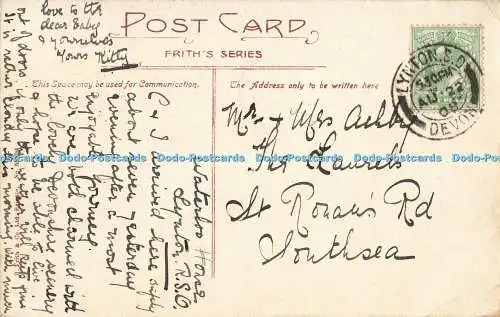 POST CARD
FRITH'S SERIES
This Space may be used for Communication.
The Address only to be written here
LYNTON. S.O.
6.30 PM
AU 22
DEVON
Mr & Mrs Ashby
The Laurels
St Ronan's Rd
Southsea
Waterloo House
Lynton. R.S.O.
C & I arrived here safely
about seven yesterday
evening after a most
enjoyable journey.
We are both charmed with
the lovely Devonshire scenery
& hope to be able to
out of doors if only the
love to the
dear Baby
& yourselves
Yours Kitty
Dodo-Postcards Dodo-Postcards Dodo-Postcards Dodo-Postcards Dodo-Postcards